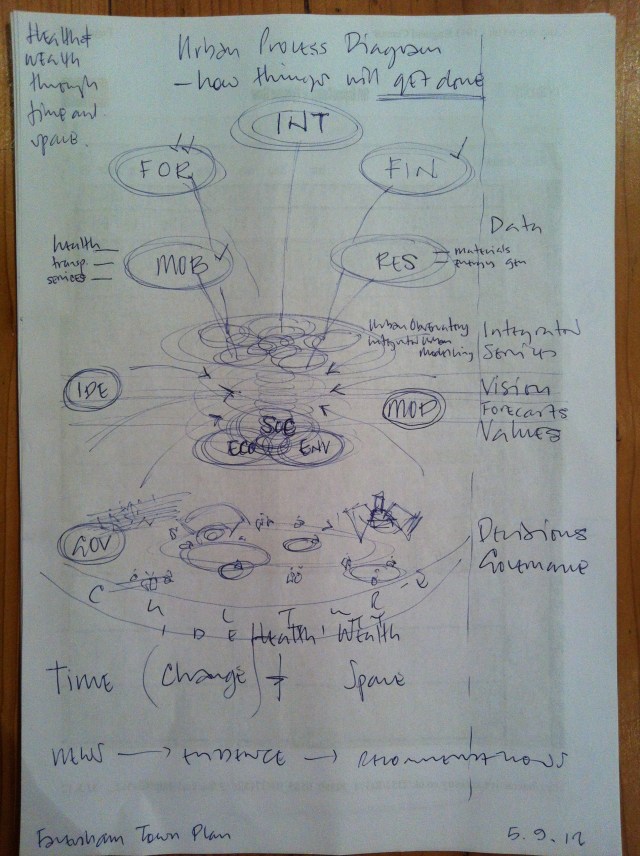 Health &
Wealth
through
time and
space.
Urban Process Diagram
– how things will get done
INT
FOR
FIN
Data
health
transp.
services
MOB
RES
materials
energy gen
Urban Observatory
Integrated Urban
Modelling
Integrated
Services
IDE
MOD
Vision
Forecasts
Values
SOC
ECO
ENV
GOV
Decisions
Governance
Health Wealth
Time (Change) + Space
NEWS → EVIDENCE → RECOMMENDATIONS
Town Plan
5.9.12